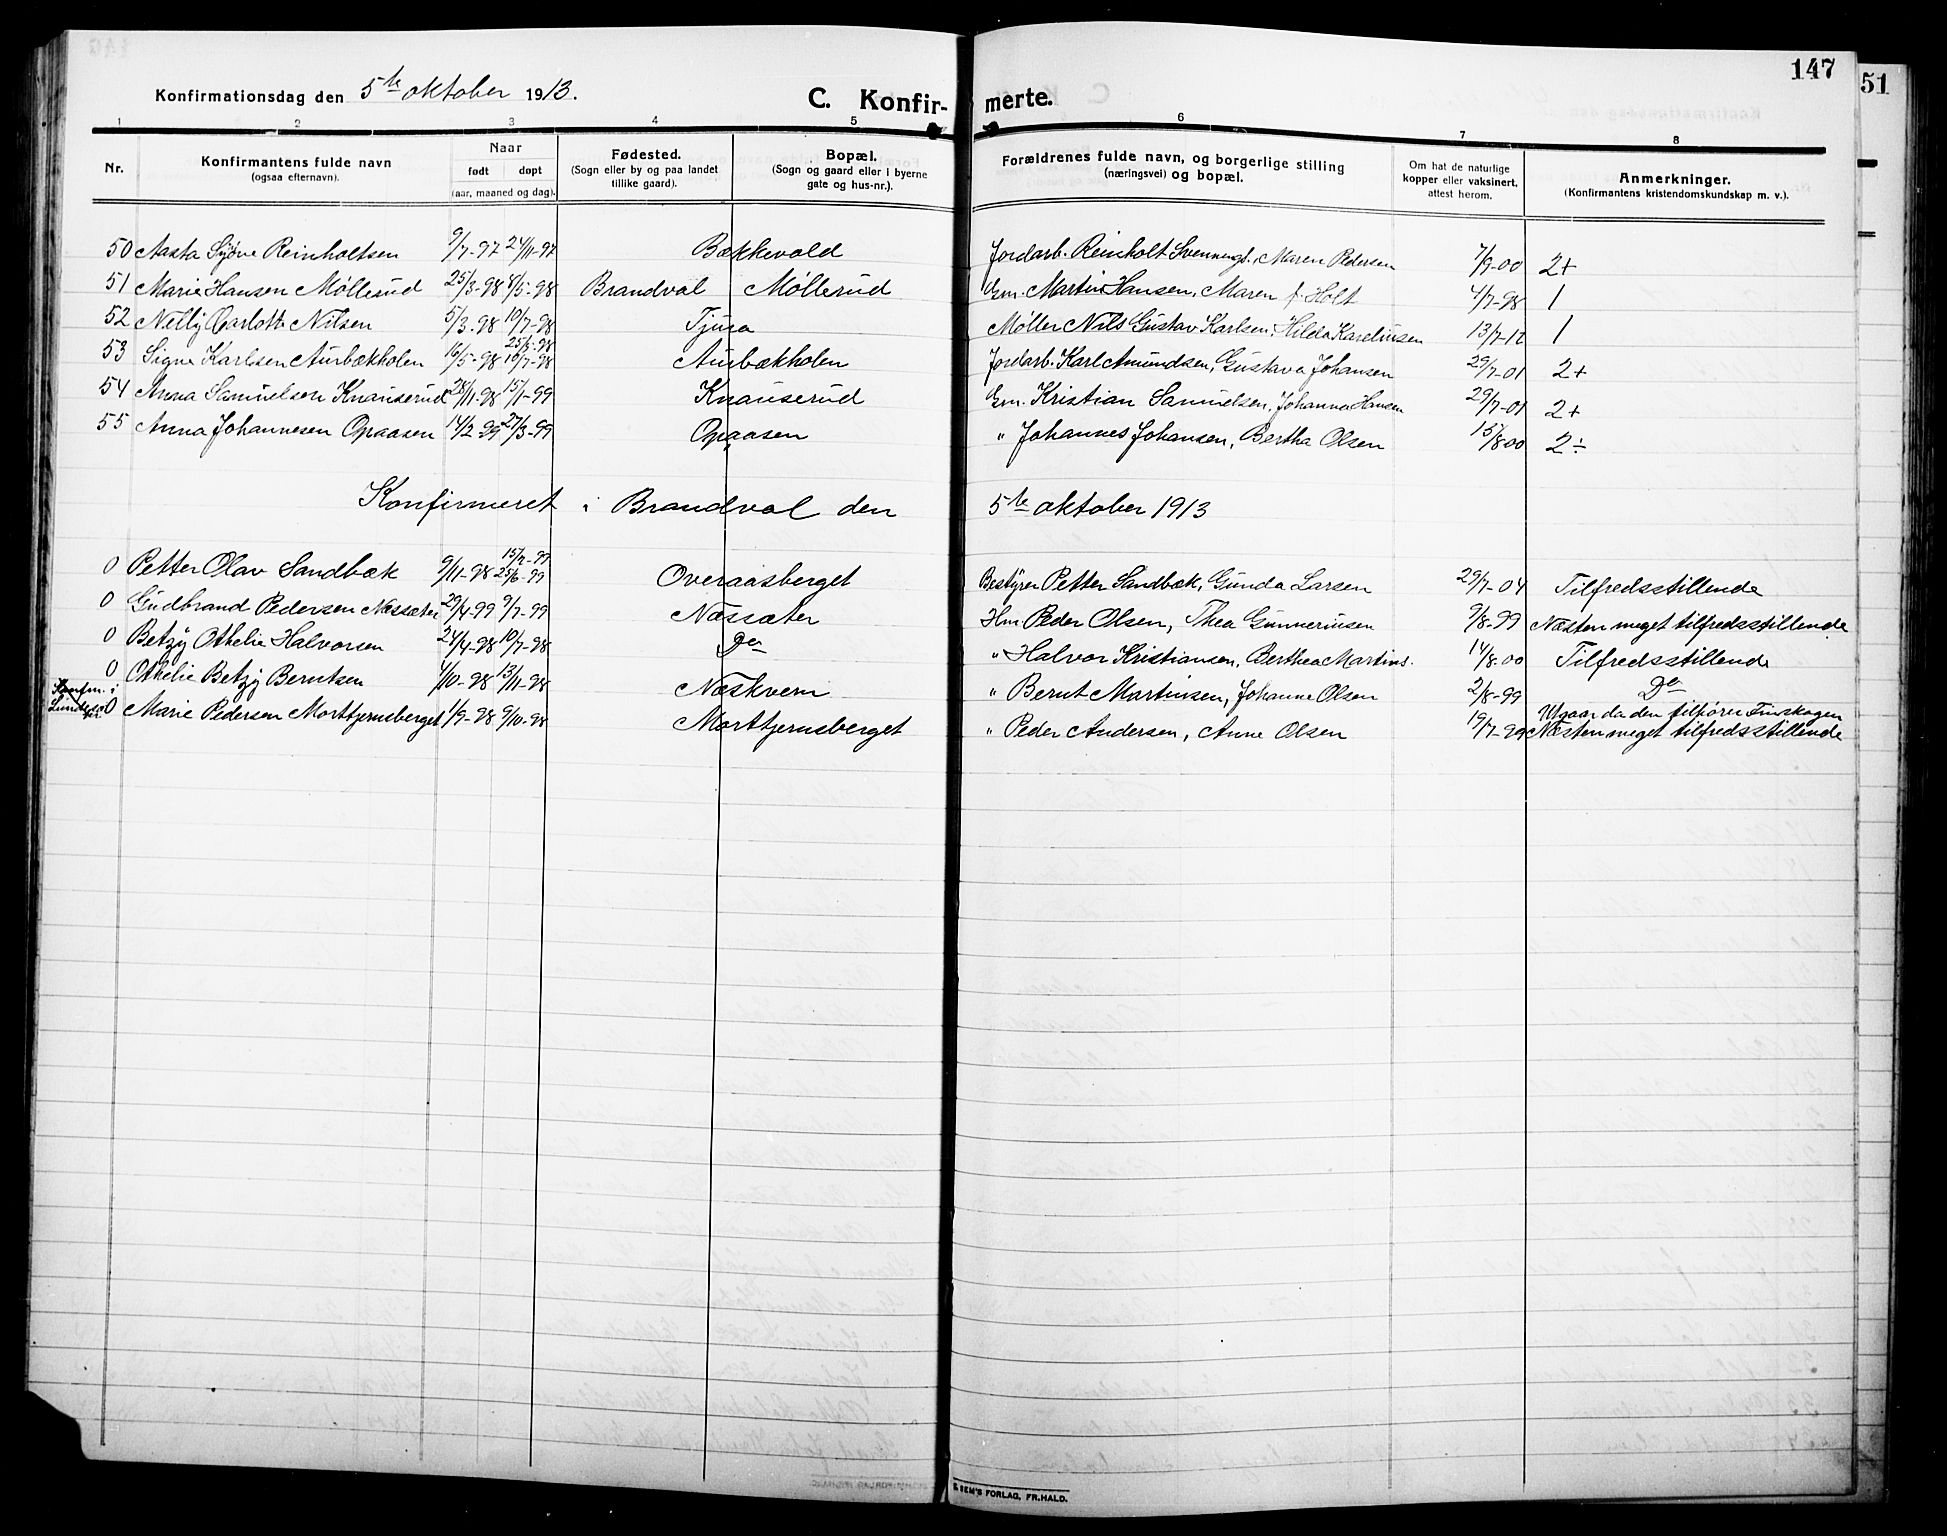 147
51
Konfirmationsdag den 5te oktober 1913.
C. Konfir- merte.
1 2 3 4 5 6 7 8
Nr. Konfirmantens fulde navn (ogsaa efternavn). Naar født døpt (aar, maaned og dag). Fødested. (Sogn eller by og paa landet tillike gaard). Bopæl. (Sogn og gaard eller i byerne gate og hus-nr.). Forældrenes fulde navn, og borgerlige stilling (næringsvei) og bopæl. Om hat de naturlige kopper eller vaksinert, attest herom. Anmerkninger. (Konfirmantens kristendomskundskap m. v.).
50 Aasta Sygne Reinholtsen 9/7-97 24/11-97 Bækkevold Jordarb. Reinholt Svennings., Maren Pedersen 7/9-00 2+
51 Marie Hansen Møllerud 25/3-98 8/5-98 Brandval Møllerud Gm. Martin Hansen, Maren f. Holt 4/7-98 1
52 Nelly Carlotte Nilsen 5/3-98 10/7-98 Tjura Møller Nils Gustav Karlsen, Hilda Karelinsen 13/7-12 1
53 Signe Karlsen Aurbækholen 16/5-98 25/5-98 16/7-98 Aurbækholen Jordarb. Karl Amundsen, Gustava Johansen 29/7-01 2+
54 Anna Samuelsen Knauserud 28/11-98 15/1-99 Knauserud Gm. Kristian Samuelsen, Johanna Hansen 29/7-01 2+
55 Anna Johannesen Opaasen 14/2-99 27/3-99 Opaasen " Johannes Johansen, Bertha Olsen 15/8-00 2÷
Konfirmeret i Brandval den 5te oktober 1913
0 Petter Olav Sandbæk 9/11-98 15/2-99 25/6-99 Overaasberget Bestyrer Petter Sandbæk, Gunda Larsen 29/7-04 Tilfredsstillende
0 Gudbrand Pedersen Næssæter 29/4-99 9/7-99 Næssæter Hm Peder Olsen, Thea Gunneriusen 9/8-99 Næsten meget tilfredsstillende
0 Betzy Othelie Halvorsen 24/4-98 10/7-98 Do " Halvor Kristiansen, Berthea Martins. 14/8-00 Tilfredsstillende
0 Othelie Betzy Berntsen 4/10-98 13/11-98 Næskvern " Bernt Martinsen, Johanne Olsen 2/8-99 Do
Konfm. i
0 Marie Pedersen Morttjernsberget 1/9-98 9/10-98 Morttjernsberget " Peder Andersen, Anne Olsen 19/7-99 Utgaar da den tilhører Finskogen
Næsten meget tilfredsstillende
E. SEM'S FORLAG, FR.HALD.